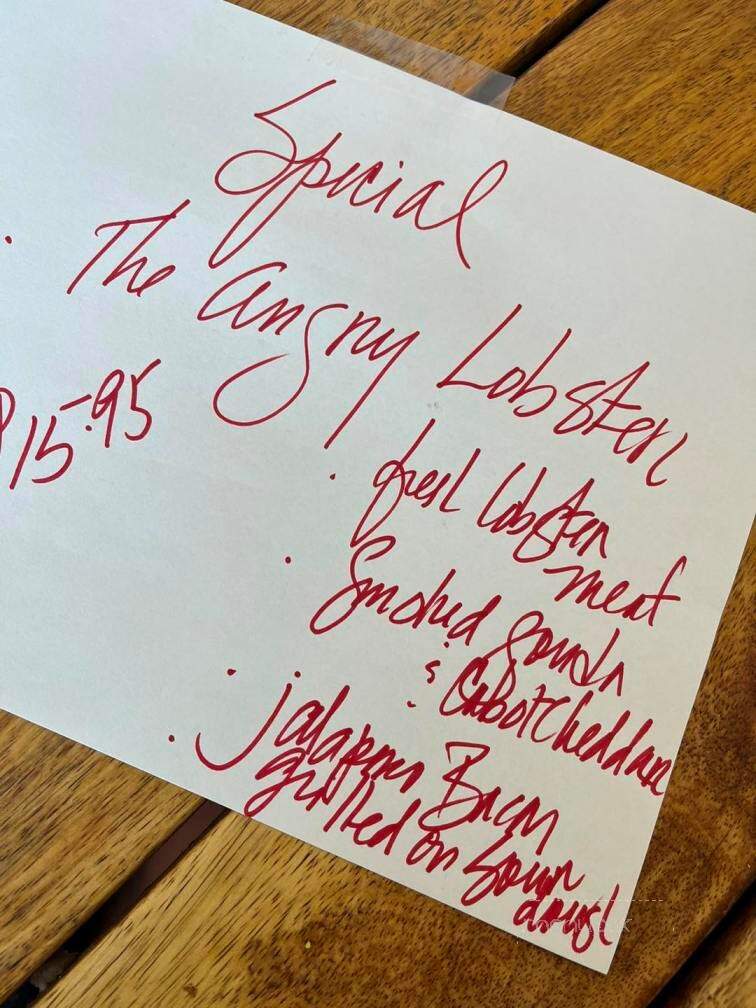 Special
The Angry Lobster
$15.95
· fresh lobster
meat
· Smoked gouda
& Cabot Cheddar
· jalapeno Bacon
· grilled on Sour
dough